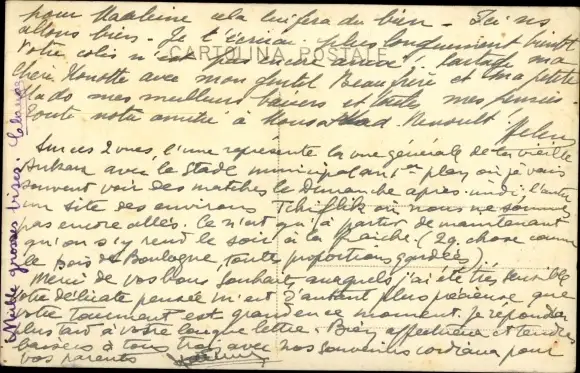 pour Madeleine cela lui fera du bien - Ici ns
allons bien. Je t'écrirai plus longuement bientôt
CARTOLINA POSTALE
Votre colis n'est pas encore arrivé. Partage ma
chère Nonotte avec mon gentil Beaufrère et ma petite
Mado mes meilleurs baisers et toutes mes pensées
Toute notre amitié à Mons Mad. Renoult. Hélène
Sur ces 2 vues, l'une représente la vue générale de la vieille
Ankara avec le Stade municipal au 1er plan où je vais
souvent voir des matches le Dimanche après-midi. L'autre
un site des environs Tchiflik où nous ne sommes
pas encore allés. Ce n'est qu'à partir de maintenant
qu'on s'y rend le soir à la fraîche. (2q. chose comme
le bois de Boulogne, toutes proportions gardées).
Merci de vos bons souhaits auxquels j'ai été très sensible
Votre délicate pensée m'est d'autant plus précieuse que
votre tourment est grand en ce moment. Je répondrai
plus tard à votre longue lettre. Bien affectueux et tendres
baisers à tous trois avec nos souvenirs cordiaux pour
vos parents
Mille grosses bises.